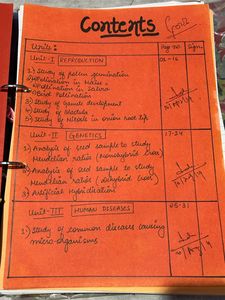 Contents
Units : Page no. Sign.
Unit-I REPRODUCTION 01-16
1) Study of Pollen germination
2) Pollination in Maize
Pollination in Salvia
Bird Pollination
3) Study of Gamete development
4) Study of Blastula
5) Study of Mitosis in onion root tip
Unit-II GENETICS 17-24
1) Analysis of seed sample to study
Mendelian ratios (monohybrid cross)
2) Analysis of seed sample to study
Mendelian ratios (dihybrid cross)
3) Artificial Hybridization
Unit-III HUMAN DISEASES 25-31
1) Study of common diseases causing
micro-organisms